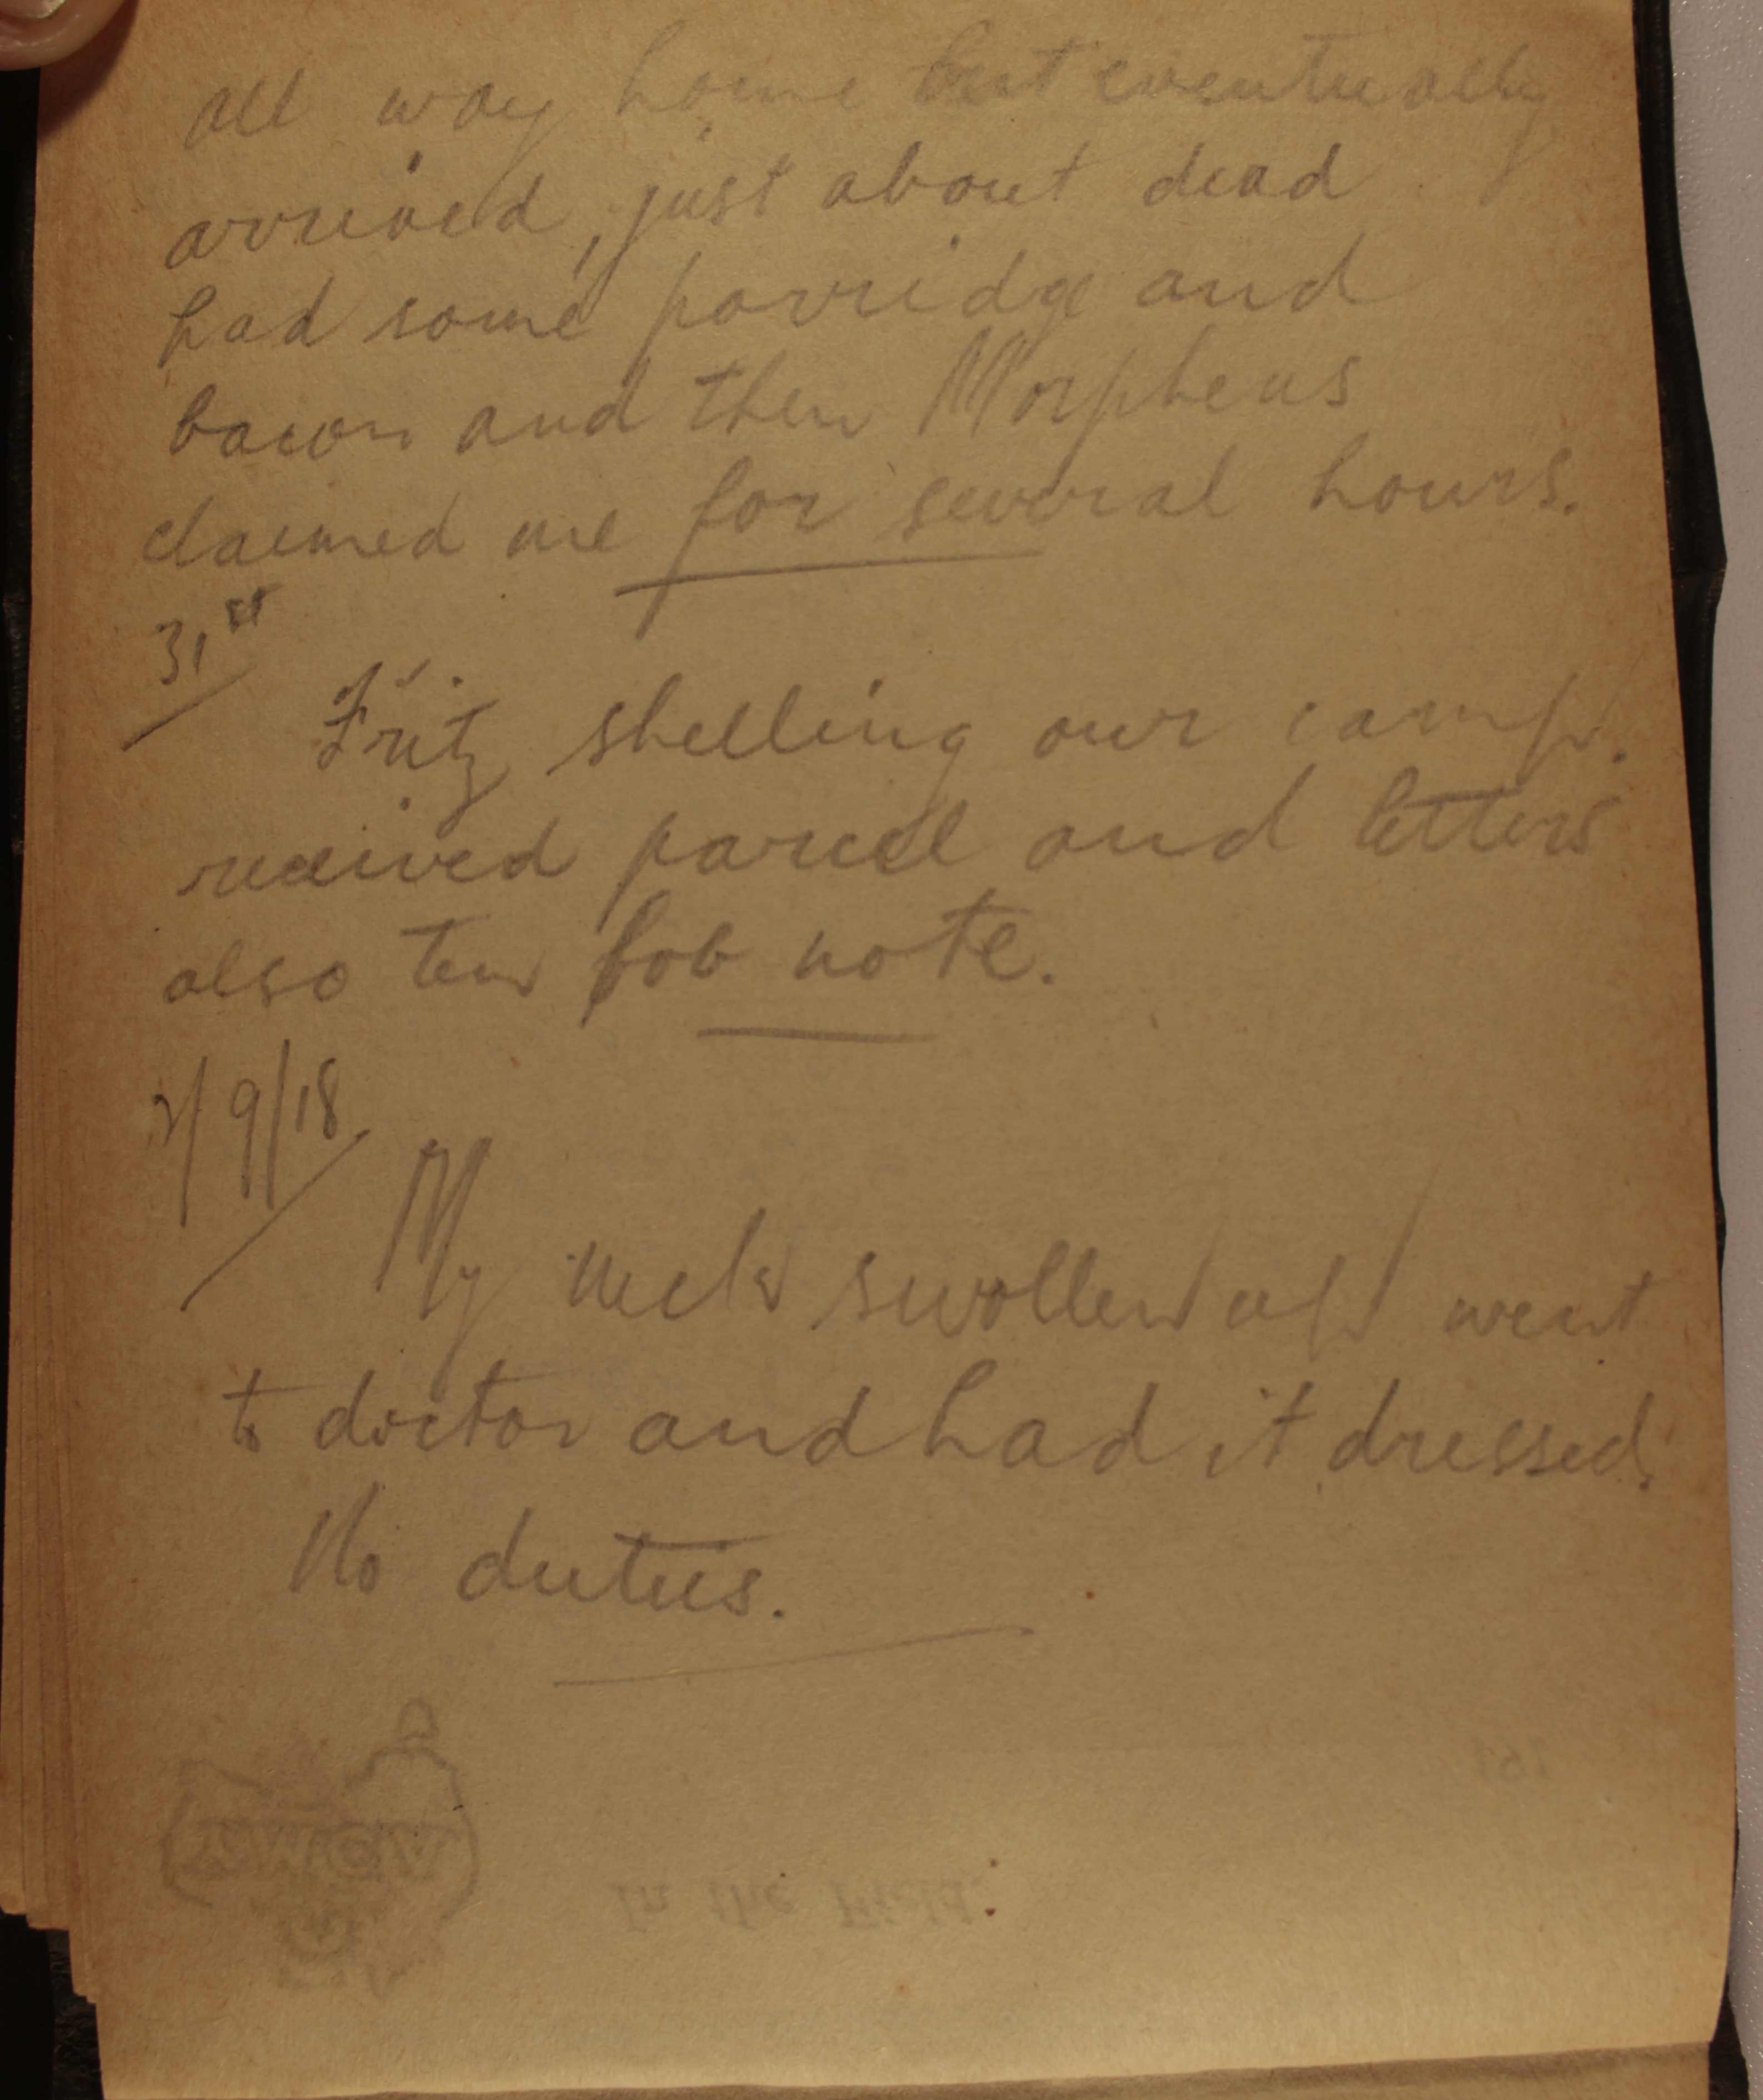 all way home but eventually
arrived, just about dead
had some porridge and
bacon and then Morpheus
claimed me for several hours.
31st
Fritz shelling our camp.
received parcel and letters
also ten bob note.
2/9/18
My neck swollen up went
to doctor and had it dressed.
No duties.
In the Field.